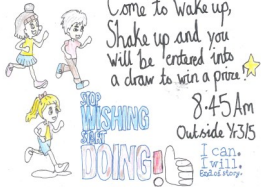 Come to Wake up,
Shake up and you
will be entered into
a draw to win a prize!
8:45Am
Outside Yr3/5
STOP
WISHING
START
DOING!
I can.
I will.
End of story.